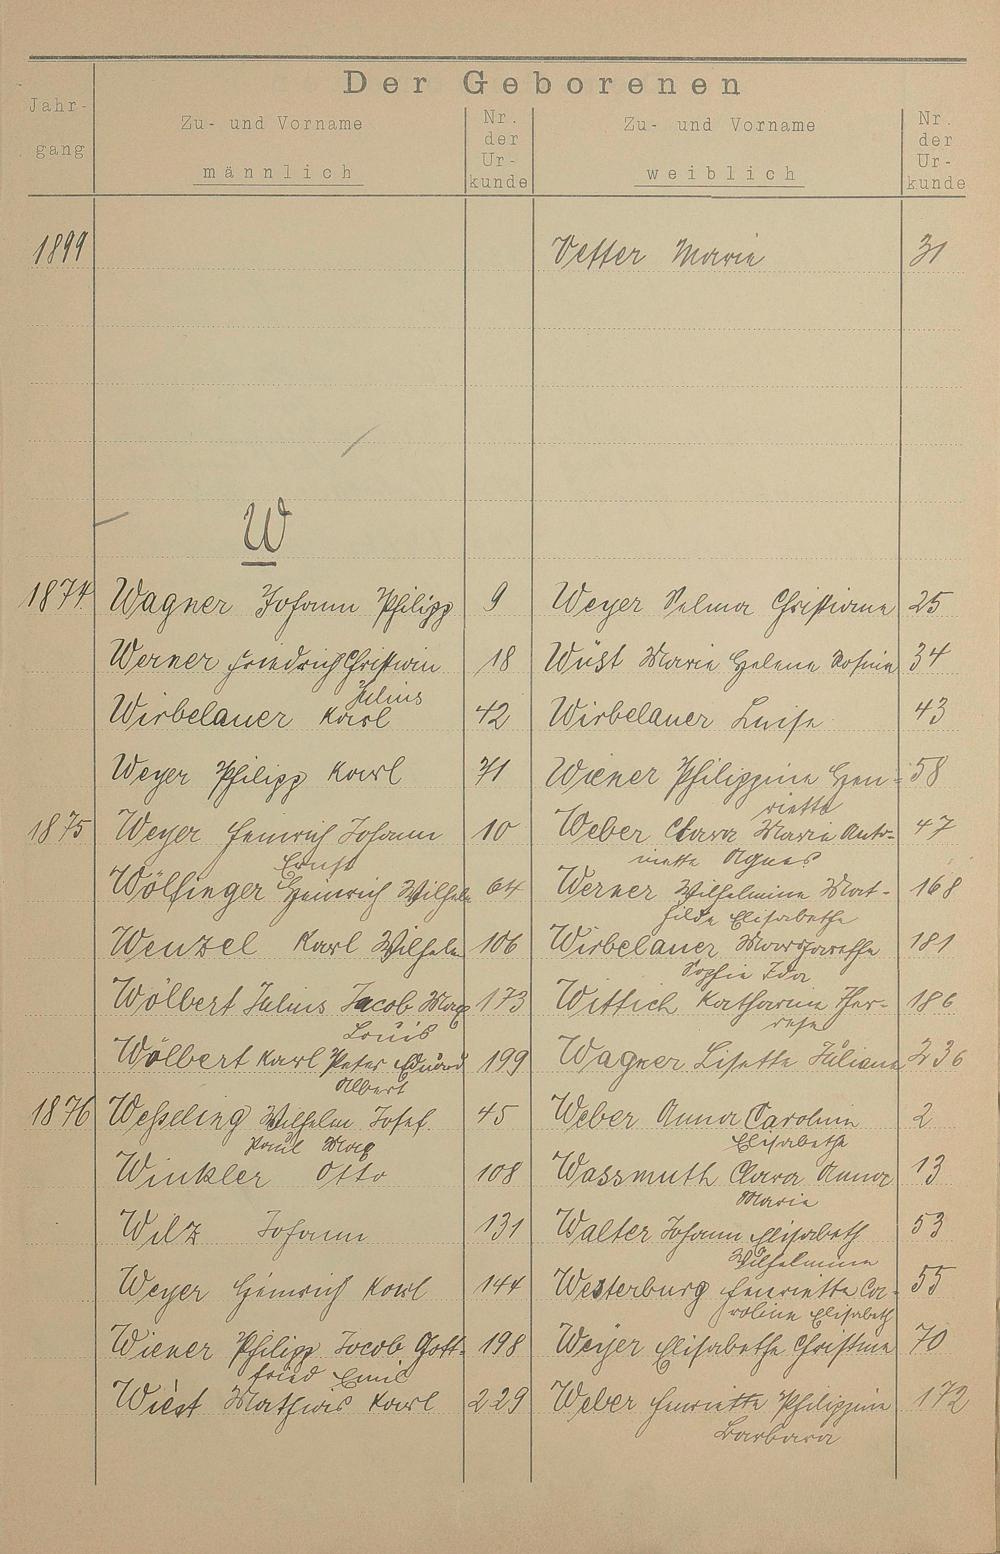 Der Geborenen
Jahr-
gang
Zu- und Vorname
männlich
Nr.
der
Ur-
kunde
Zu- und Vorname
weiblich
Nr.
der
Ur-
kunde
1899 Vetter Marie 31
W
1874 Wagner Johann Philipp 9 Weyer Selma Christiane 25
Werner Friedrich Christian 18 Wüst Marie Helene Rosine 34
Julius
Wirbelauer Karl 42 Wirbelauer Luise 43
Weyer Philipp Karl 71 Wiener Philippine Hen- 58
riette
1875 Weyer Heinrich Johann 10 Weber Clara Marie Anto- 47
Ernst niette Agnes
Wölfinger Heinrich Wilhelm 64 Werner Wilhelmine Mat- 168
hilde Elisabethe
Wenzel Karl Wilhelm 106 Wirbelauer Margarethe 181
Sophie Ida
Wölbert Julius Jacob Max 173 Wittich Katharine Ther- 186
Louis rese
Wölbert Karl Peter Eduard 199 Wagner Lisette Juliane 236
Albert
1876 Weßeling Wilhelm Josef 45 Weber Anna Caroline 2
Paul Max Elisabethe
Winkler Otto 108 Wassmuth Clara Anna 13
Marie
Wilz Johann 131 Walter Johann Elisabeth 53
Wilhelmine
Weyer Heinrich Karl 144 Westerburg Henriette Ca- 55
roline Elisabeth
Wiener Philipp Jacob Gott- 198 Weyer Elisabethe Christine 70
fried Emil
Wiest Mathias Karl 229 Weber Henriette Philippine 172
Barbara